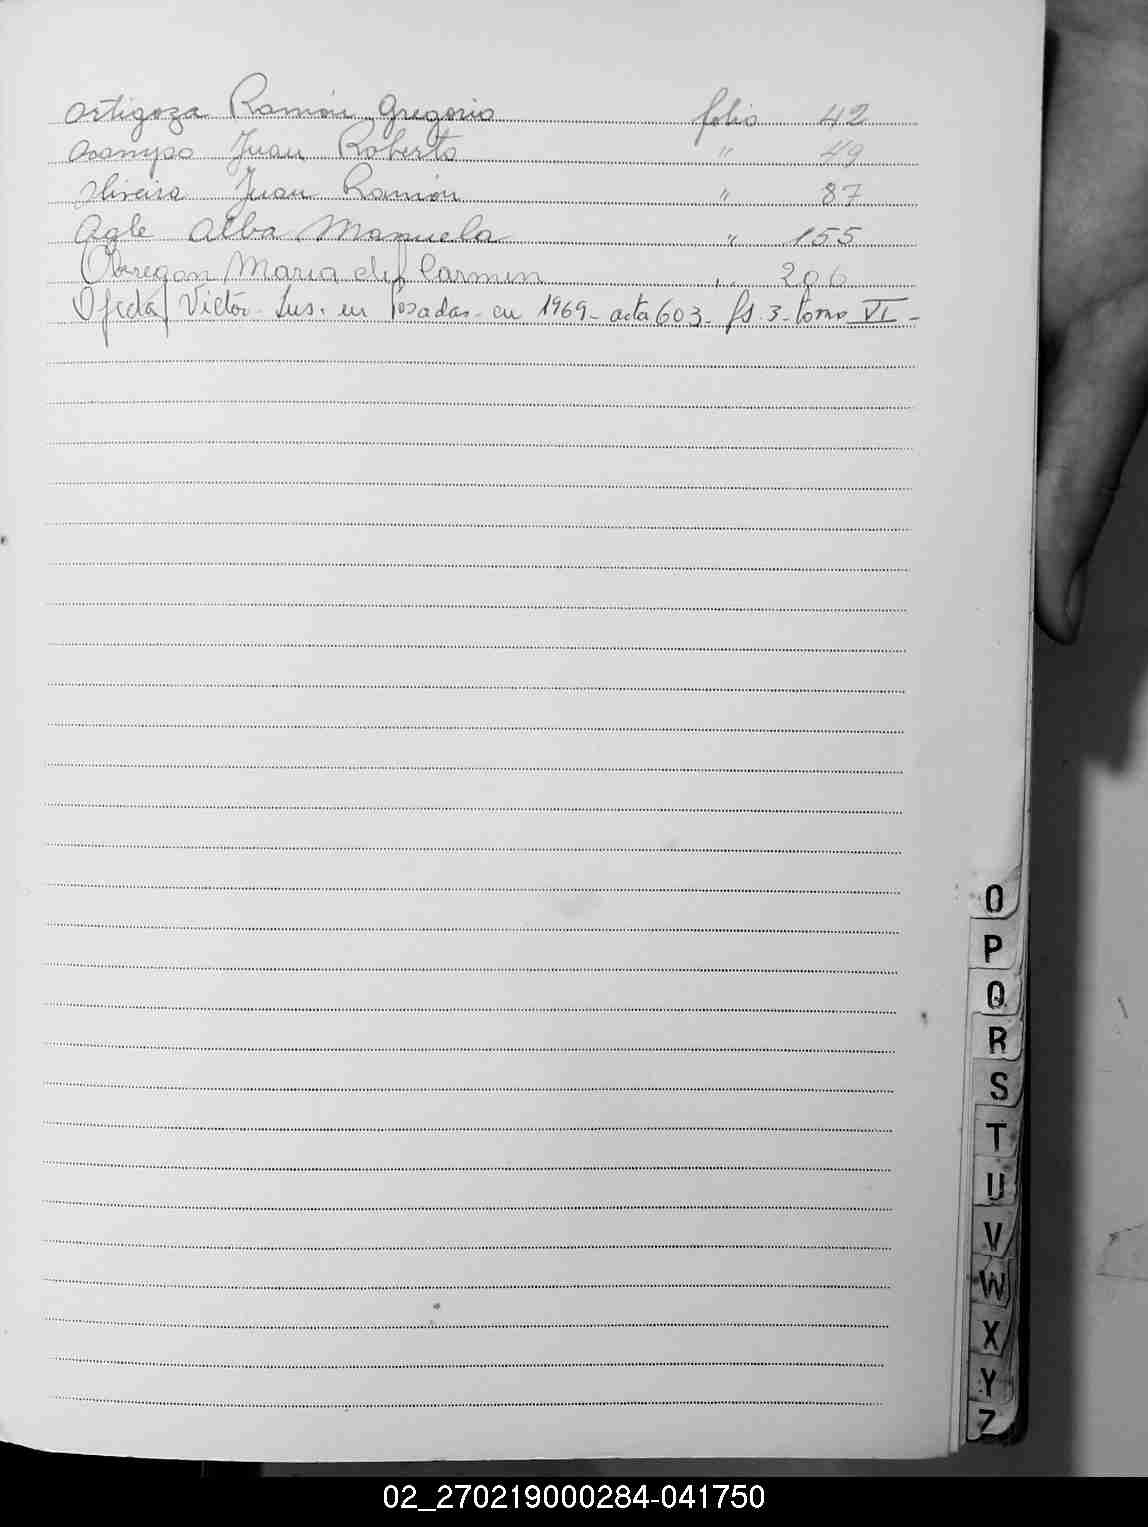 Ortigoza Ramón Gregorio folio 42
Ocampo Juan Roberto " 49
Oliveira Juan Ramón " 87
Ogle Alba Manuela " 155
Obregon Maria del Carmen " 206
Víctor Ins. en Posadas en 1969 - acta 603 - fs. 3 - tomo VI -
O
P
Q
R
S
T
U
V
W
X
Y
Z
02_270219000284-041750